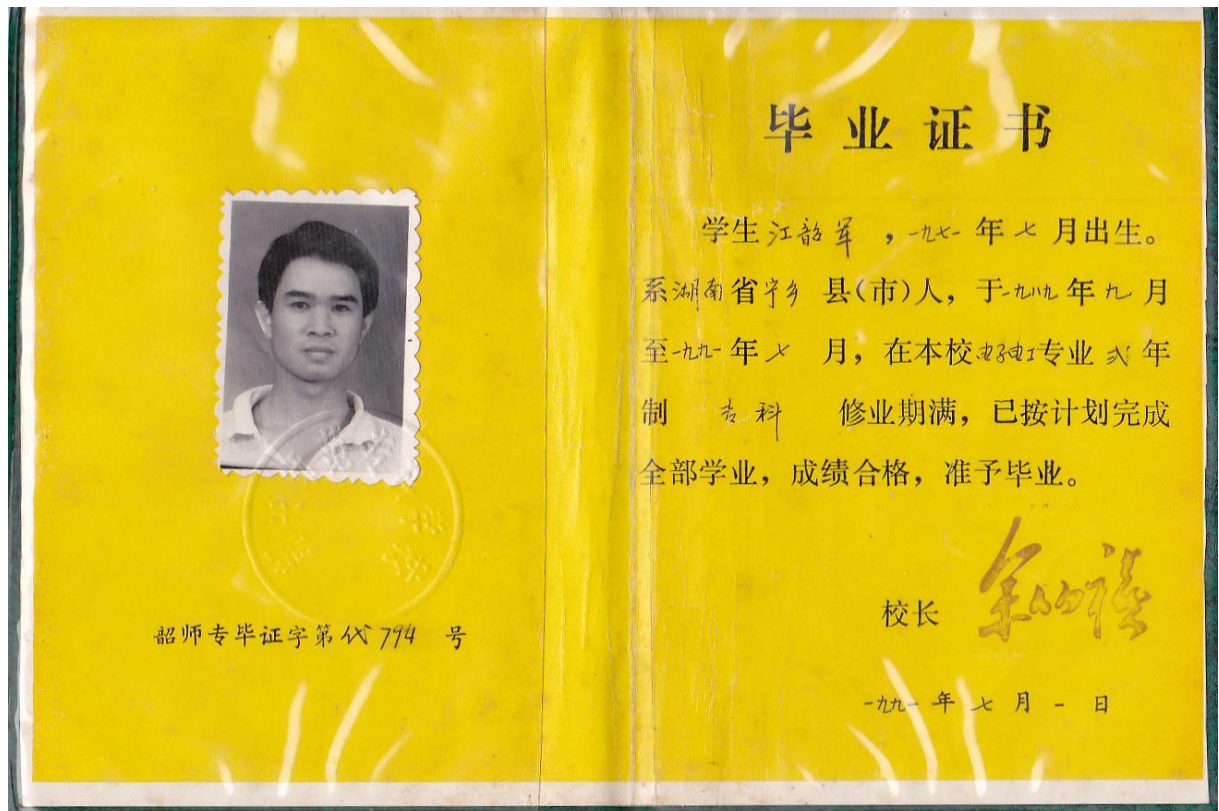 韶师专毕证字第代794号
毕业证书
学生江韶军，一九七一年七月出生。
系湖南省宁乡县(市)人，于一九八九年九月
至一九九一年七月，在本校电子电工专业贰年
制专科修业期满，已按计划完成
全部学业，成绩合格，准予毕业。
校长
一九九一年七月一日